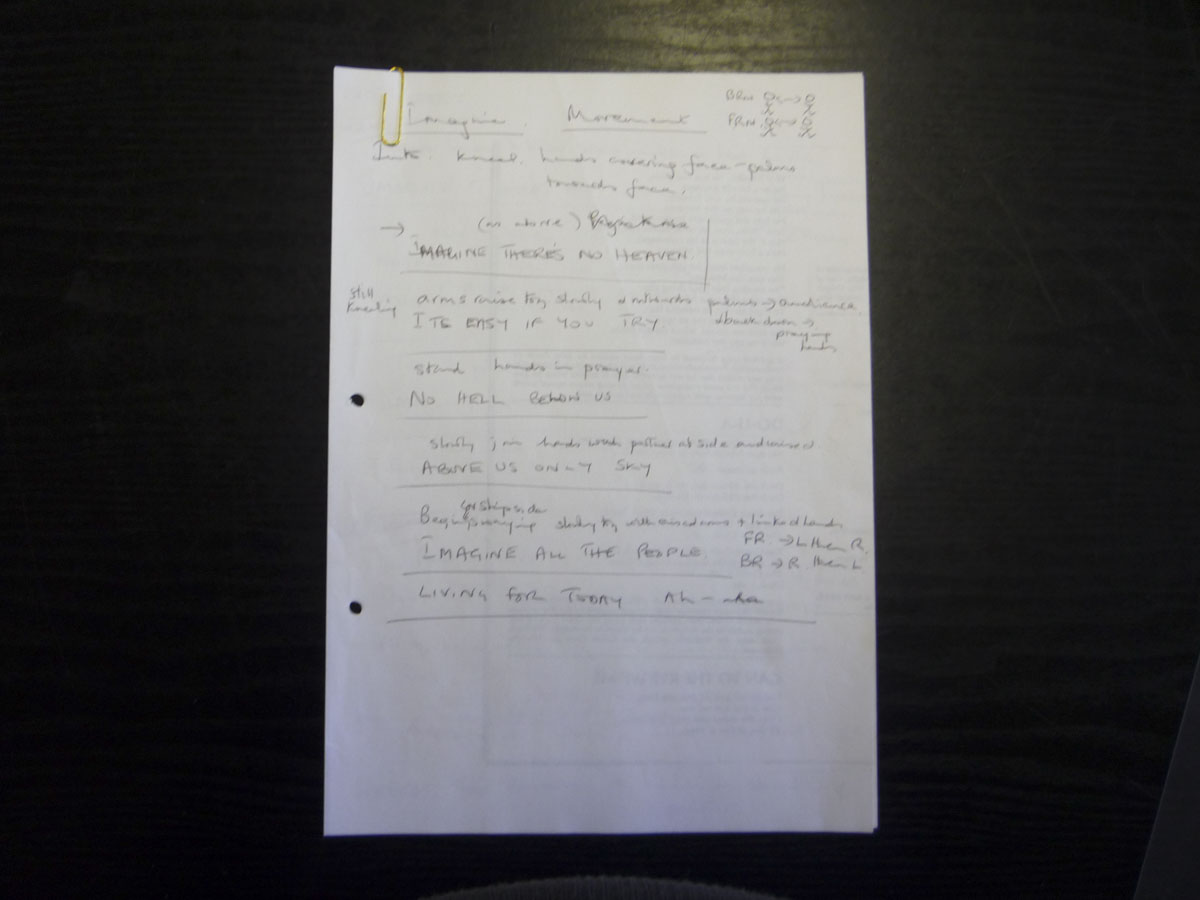 Imagine. Movement
BRN O<->O
FRN O<->O
Intro. kneel. hands covering face - palms
towards face.
-> (as above)
IMAGINE THERE'S NO HEAVEN
still
kneeling
arms raise slowly & outwards palms -> audience
& back down ->
praying
hands
ITS EASY IF YOU TRY
stand hands in prayer.
NO HELL BELOW US
slowly join hands with partner at side and raised.
ABOVE US ONLY SKY
Begin swaying slowly with raised arms + linked hands
FR -> L then R.
BR -> R then L
IMAGINE ALL THE PEOPLE.
LIVING FOR TODAY AH --